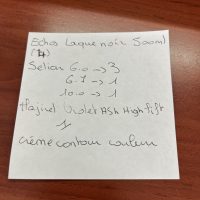 Echos Laque noir 500ml
(4)
Selian 6.0 → 3
6.7 → 1
10.0 → 1
Majirel Violet Ash High lift
1
crème contour couleur